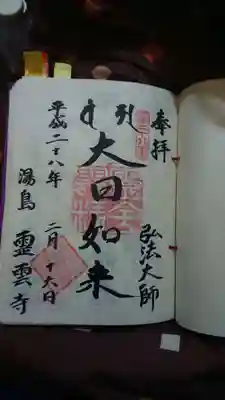 奉拝
弘法大師
大日如来
平成二十八年
二月十六日
湯島 靈雲寺